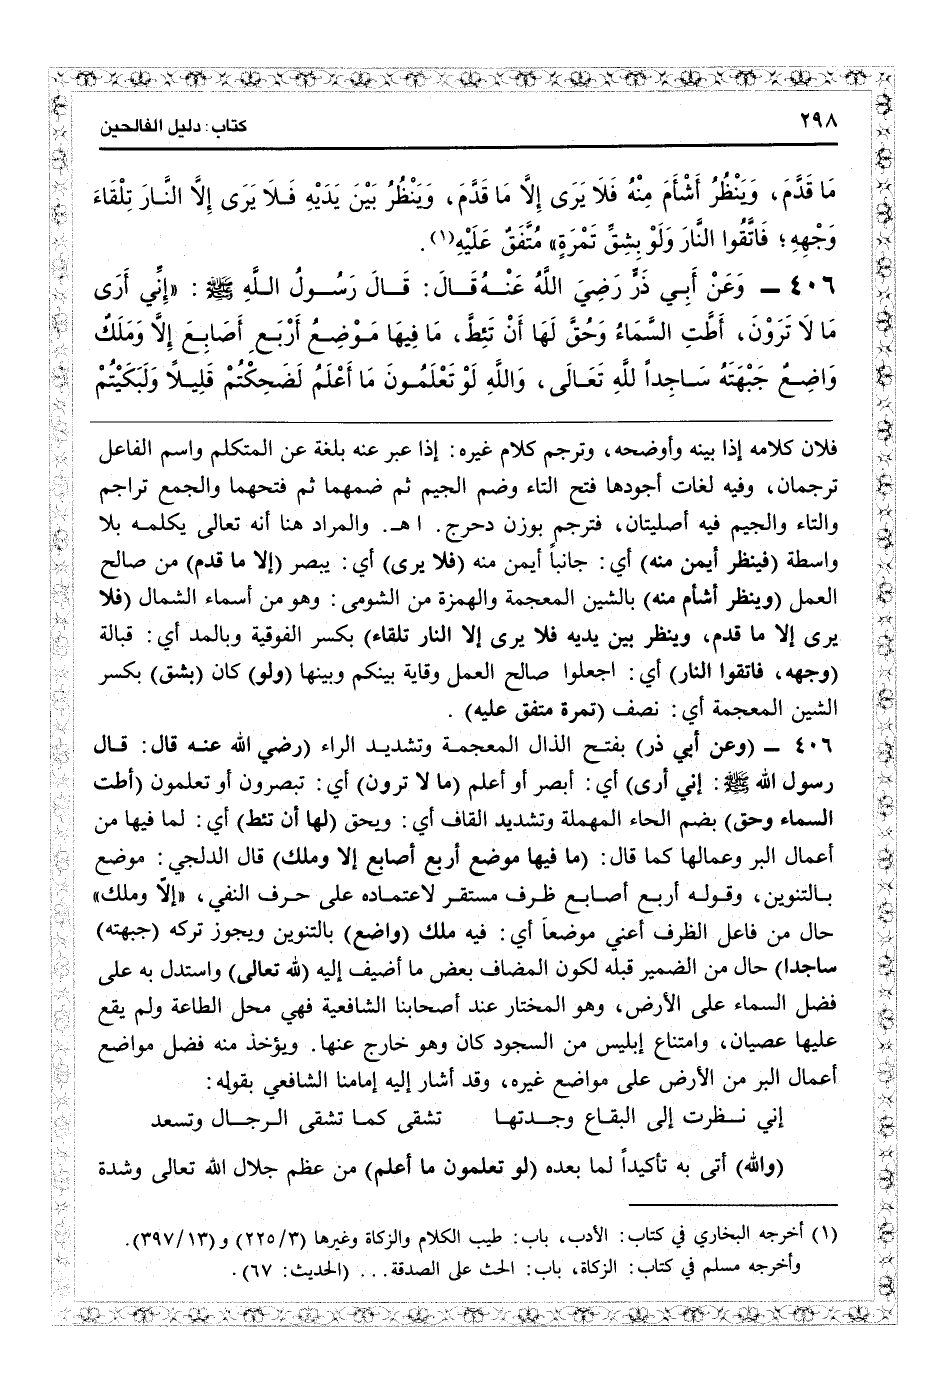 ٢٩٨
كتاب: دليل الفالحين
مَا قَدَّمَ، وَيَنْظُرُ أَشْأَمَ مِنْهُ فَلَا يَرَى إِلَّا مَا قَدَّمَ، وَيَنْظُرُ بَيْنَ يَدَيْهِ فَلَا يَرَى إِلَّا النَّارَ تِلْقَاءَ
وَجْهِهِ؛ فَاتَّقُوا النَّارَ وَلَوْ بِشِقِّ تَمْرَةٍ» مُتَّفَقٌ عَلَيْهِ(١).
٤٠٦ – وَعَنْ أَبِي ذَرٍّ رَضِيَ اللَّهُ عَنْهُ قَالَ: قَالَ رَسُولُ اللَّهِ ﷺ: «إِنِّي أَرَى
مَا لَا تَرَوْنَ، أَطَّتِ السَّمَاءُ وَحُقَّ لَهَا أَنْ تَئِطَّ، مَا فِيهَا مَوْضِعُ أَرْبَعِ أَصَابِعَ إِلَّا وَمَلَكٌ
وَاضِعٌ جَبْهَتَهُ سَاجِداً للَّهِ تَعَالَى، وَاللَّهِ لَوْ تَعْلَمُونَ مَا أَعْلَمُ لَضَحِكْتُمْ قَلِيلاً وَلَبَكَيْتُمْ
فلان كلامه إذا بينه وأوضحه، وترجم كلام غيره: إذا عبر عنه بلغة عن المتكلم واسم الفاعل
ترجمان، وفيه لغات أجودها فتح التاء وضم الجيم ثم ضمهما ثم فتحهما والجمع تراجم
والتاء والجيم فيه أصليتان، فترجم بوزن دحرج. اهـ. والمراد هنا أنه تعالى يكلمه بلا
واسطة (فينظر أيمن منه) أي: جانباً أيمن منه (فلا يرى) أي: يبصر (إلا ما قدم) من صالح
العمل (وينظر أشأم منه) بالشين المعجمة والهمزة من الشومى: وهو من أسماء الشمال (فلا
يرى إلا ما قدم، وينظر بين يديه فلا يرى إلا النار تلقاء) بكسر الفوقية وبالمد أي: قبالة
(وجهه، فاتقوا النار) أي: اجعلوا صالح العمل وقاية بينكم وبينها (ولو) كان (بشق) بكسر
الشين المعجمة أي: نصف (تمرة متفق عليه) .
٤٠٦ – (وعن أبي ذر) بفتح الذال المعجمة وتشديد الراء (رضي الله عنه قال: قال
رسول الله ﷺ: إني أرى) أي: أبصر أو أعلم (ما لا ترون) أي: تبصرون أو تعلمون (أطت
السماء وحق) بضم الحاء المهملة وتشديد القاف أي: ويحق (لها أن تئط) أي: لما فيها من
أعمال البر وعمالها كما قال: (ما فيها موضع أربع أصابع إلا وملك) قال الدلجي: موضع
بالتنوين، وقوله أربع أصابع ظرف مستقر لاعتماده على حرف النفي، «إلّا وملك»
حال من فاعل الظرف أعني موضعاً أي: فيه ملك (واضع) بالتنوين ويجوز تركه (جبهته)
ساجدا) حال من الضمير قبله لكون المضاف بعض ما أضيف إليه (لله تعالى) واستدل به على
فضل السماء على الأرض، وهو المختار عند أصحابنا الشافعية فهي محل الطاعة ولم يقع
عليها عصيان، وامتناع إبليس من السجود كان وهو خارج عنها. ويؤخذ منه فضل مواضع
أعمال البر من الأرض على مواضع غيره، وقد أشار إليه إمامنا الشافعي بقوله:
إني نظرت إلى البقاع وجدتها تشقى كما تشقى الرجال وتسعد
(والله) أتى به تأكيداً لما بعده (لو تعلمون ما أعلم) من عظم جلال الله تعالى وشدة
(١) أخرجه البخاري في كتاب: الأدب، باب: طيب الكلام والزكاة وغيرها (٢٢٥/٣) و(٣٩٧/١٣).
وأخرجه مسلم في كتاب: الزكاة، باب: الحث على الصدقة... (الحديث: ٦٧).